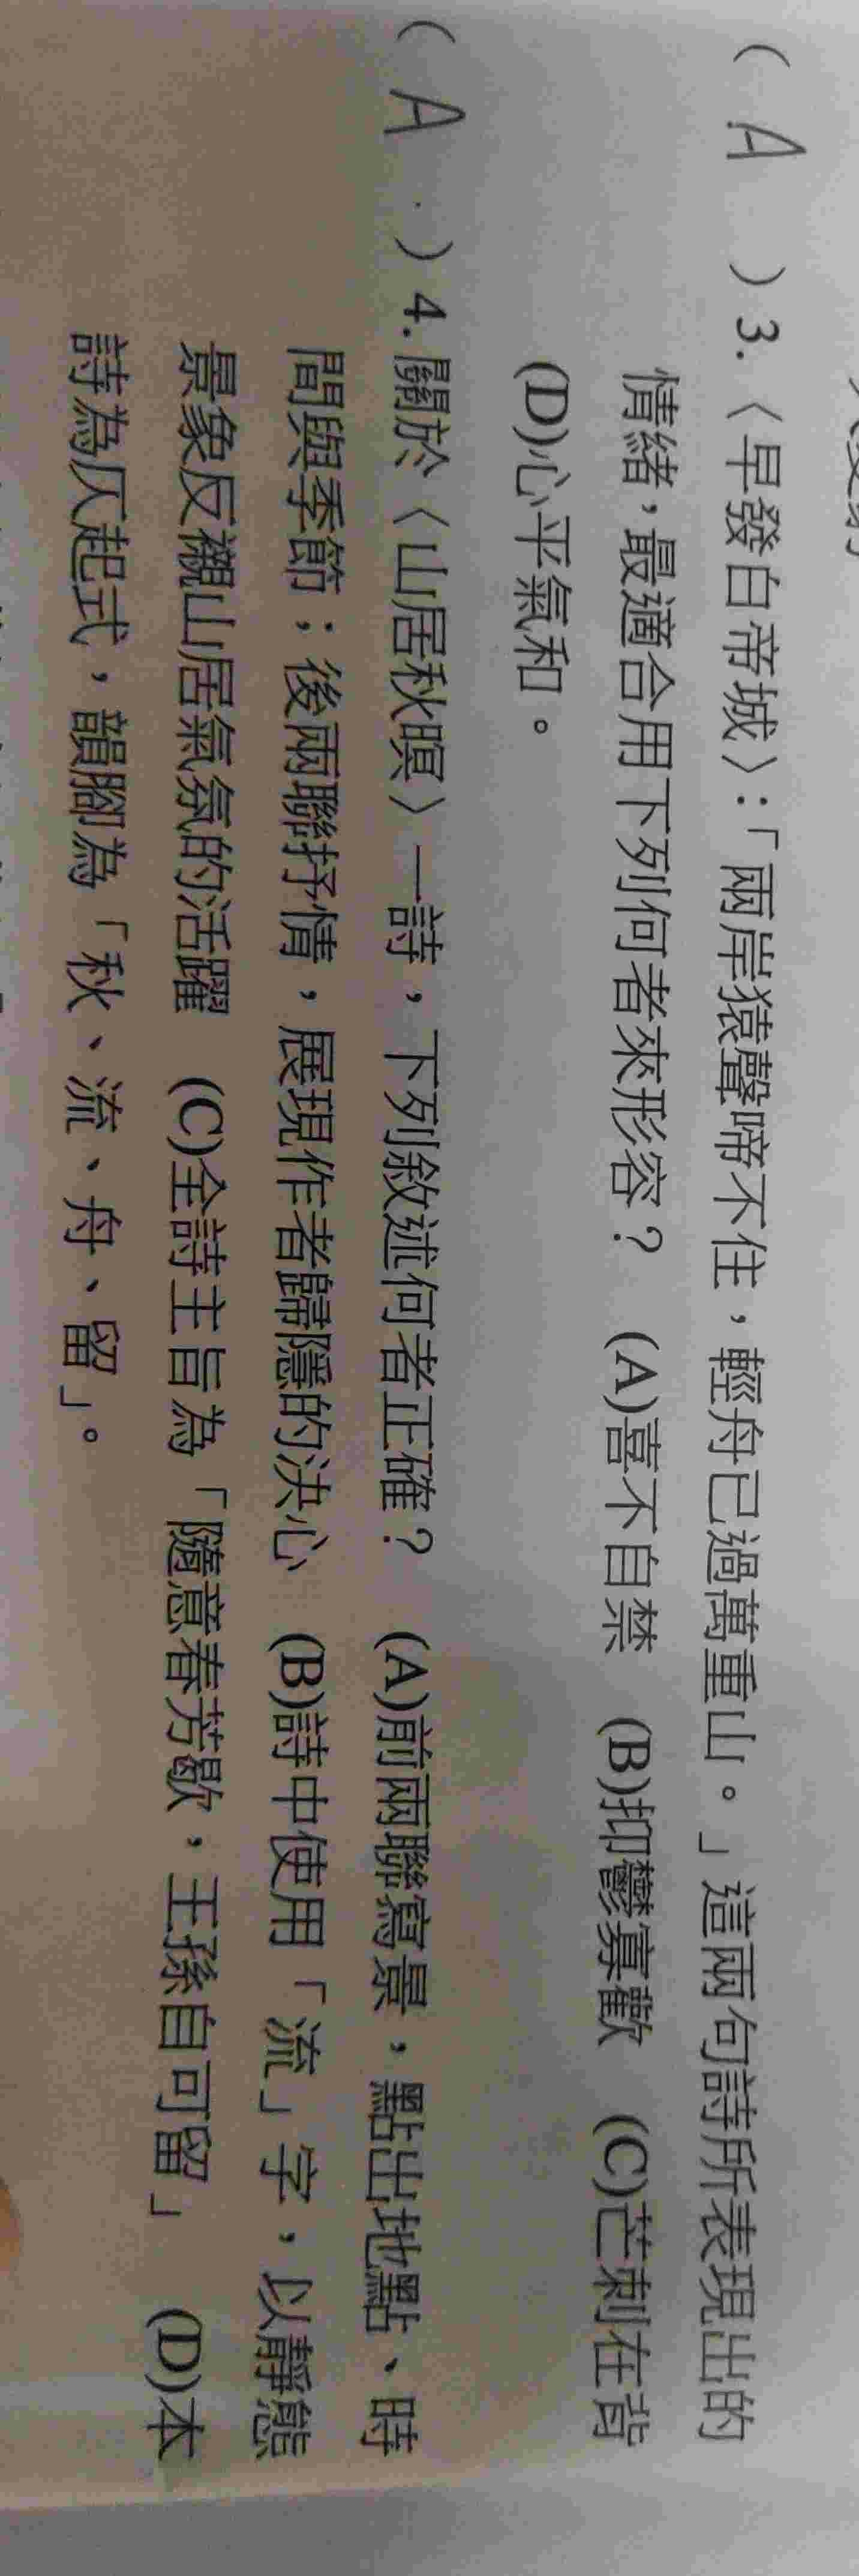 ( A ) 3.〈早發白帝城〉：「兩岸猿聲啼不住，輕舟已過萬重山。」這兩句詩所表現出的
情緒，最適合用下列何者來形容？ (A)喜不自禁 (B)抑鬱寡歡 (C)芒刺在背
(D)心平氣和。
( A ) 4.關於〈山居秋暝〉一詩，下列敘述何者正確？ (A)前兩聯寫景，點出地點、時
間與季節；後兩聯抒情，展現作者歸隱的決心 (B)詩中使用「流」字，以靜態
景象反襯山居氣氛的活躍 (C)全詩主旨為「隨意春芳歇，王孫自可留」 (D)本
詩為仄起式，韻腳為「秋、流、舟、留」。